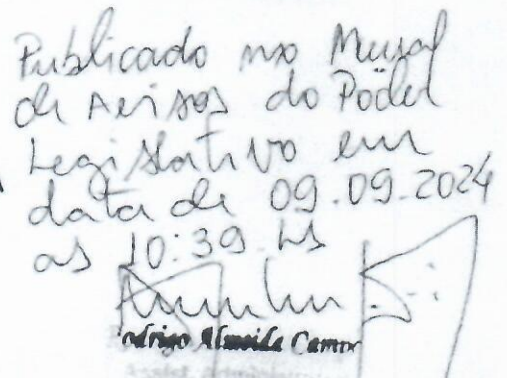 Publicado no Mural
de Avisos do Poder
Legislativo em
data de 09.09.2024
as 10:39 hs
Rodrigo Almeida